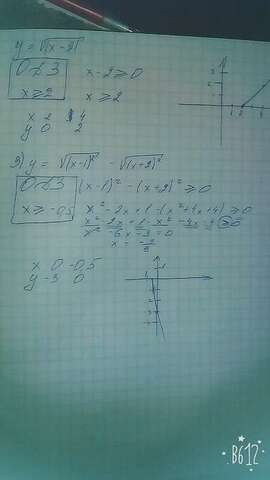 y = √(x-2)
ОДЗ x - 2 ≥ 0
x ≥ 2 x ≥ 2
x 2 4
y 0 2
3) y = √(x-1)² - √(x+2)²
ОДЗ (x-1)² - (x+2)² ≥ 0
x ≥ -0,5 x² - 2x + 1 - (x² + 4x + 4) ≥ 0
x² - 2x + 1 - x² - 4x - 4 ≥ 0
-6x - 3 = 0
x 0 -0,5
y -3 0
B612